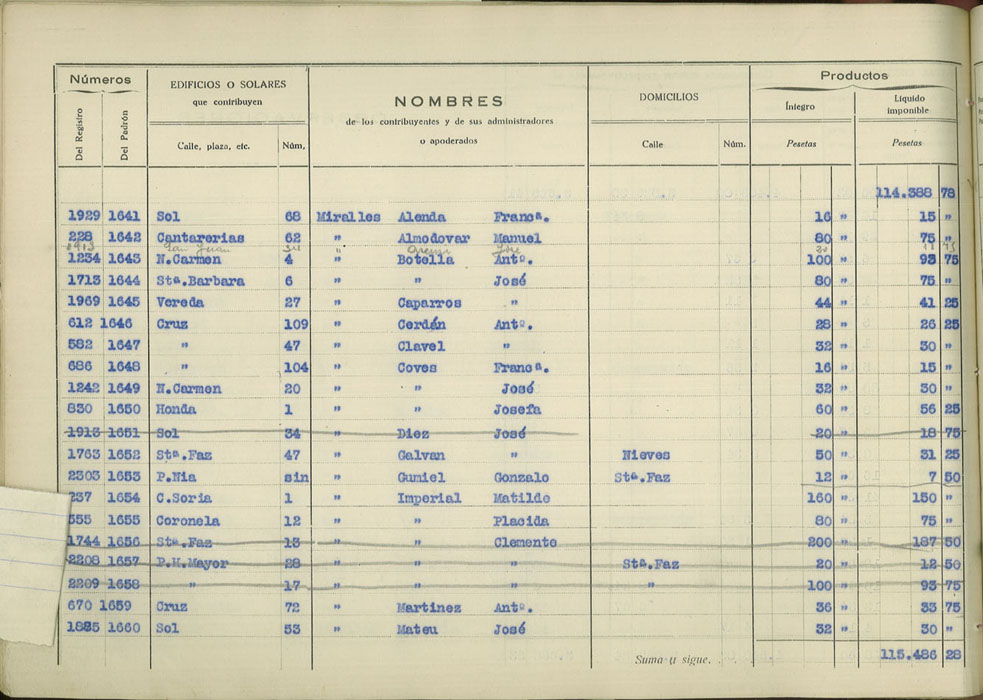 Números EDIFICIOS O SOLARES NOMBRES DOMICILIOS Productos
Del Registro Del Padrón que contribuyen de los contribuyentes y de sus administradores Íntegro Líquido imponible
Calle, plaza, etc. Núm, o apoderados Calle Núm. Pesetas Pesetas
114.388 78
1929 1641 Sol 68 Miralles Alenda Franca. 16 " 15 "
228 1642 Cantarerias 62 " Almodovar Manuel 80 " 75 "
1913 San Juan
1234 1643 N.Carmen 4 " Botella Antº. 100 " 93 75
1713 1644 Stª.Barbara 6 " " José 80 " 75 "
1969 1645 Vereda 27 " Caparros " 44 " 41 25
612 1646 Cruz 109 " Cerdán Antº. 28 " 26 25
582 1647 " 47 " Clavel " 32 " 30 "
686 1648 " 104 " Coves Francª. 16 " 15 "
1242 1649 N.Carmen 20 " " José 32 " 30 "
830 1650 Honda 1 " " Josefa 60 " 56 25
1913 1651 Sol 34 " Diez José 20 " 18 75
1763 1652 Stª.Faz 47 " Galvan " Nieves 50 " 31 25
2303 1653 P.Nia sin " Gumiel Gonzalo Stª.Faz 12 " 7 50
237 1654 C.Soria 1 " Imperial Matilde 160 " 150 "
555 1655 Coronela 12 " " Placida 80 " 75 "
1744 1656 Stª.Faz 13 " " Clemente 200 " 187 50
2208 1657 P.H.Mayor 28 " " " Stª.Faz 20 " 12 50
2209 1658 " 17 " " " " 100 " 93 75
670 1659 Cruz 72 " Martinez Antº. 36 " 33 75
1885 1660 Sol 53 " Mateu José 32 " 30 "
Suma y sigue. . . 115.486 28